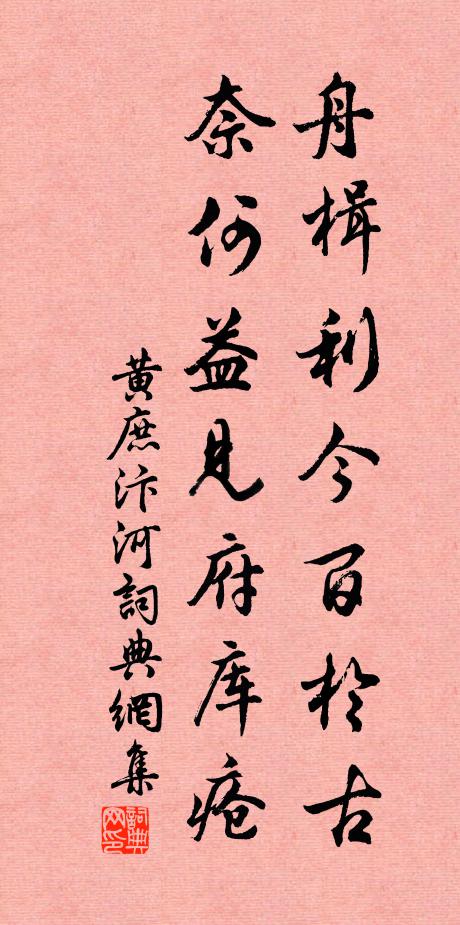 舟楫利今百於古
奈何益见府库疮
黄庶汴河詞典網集
詞典网印